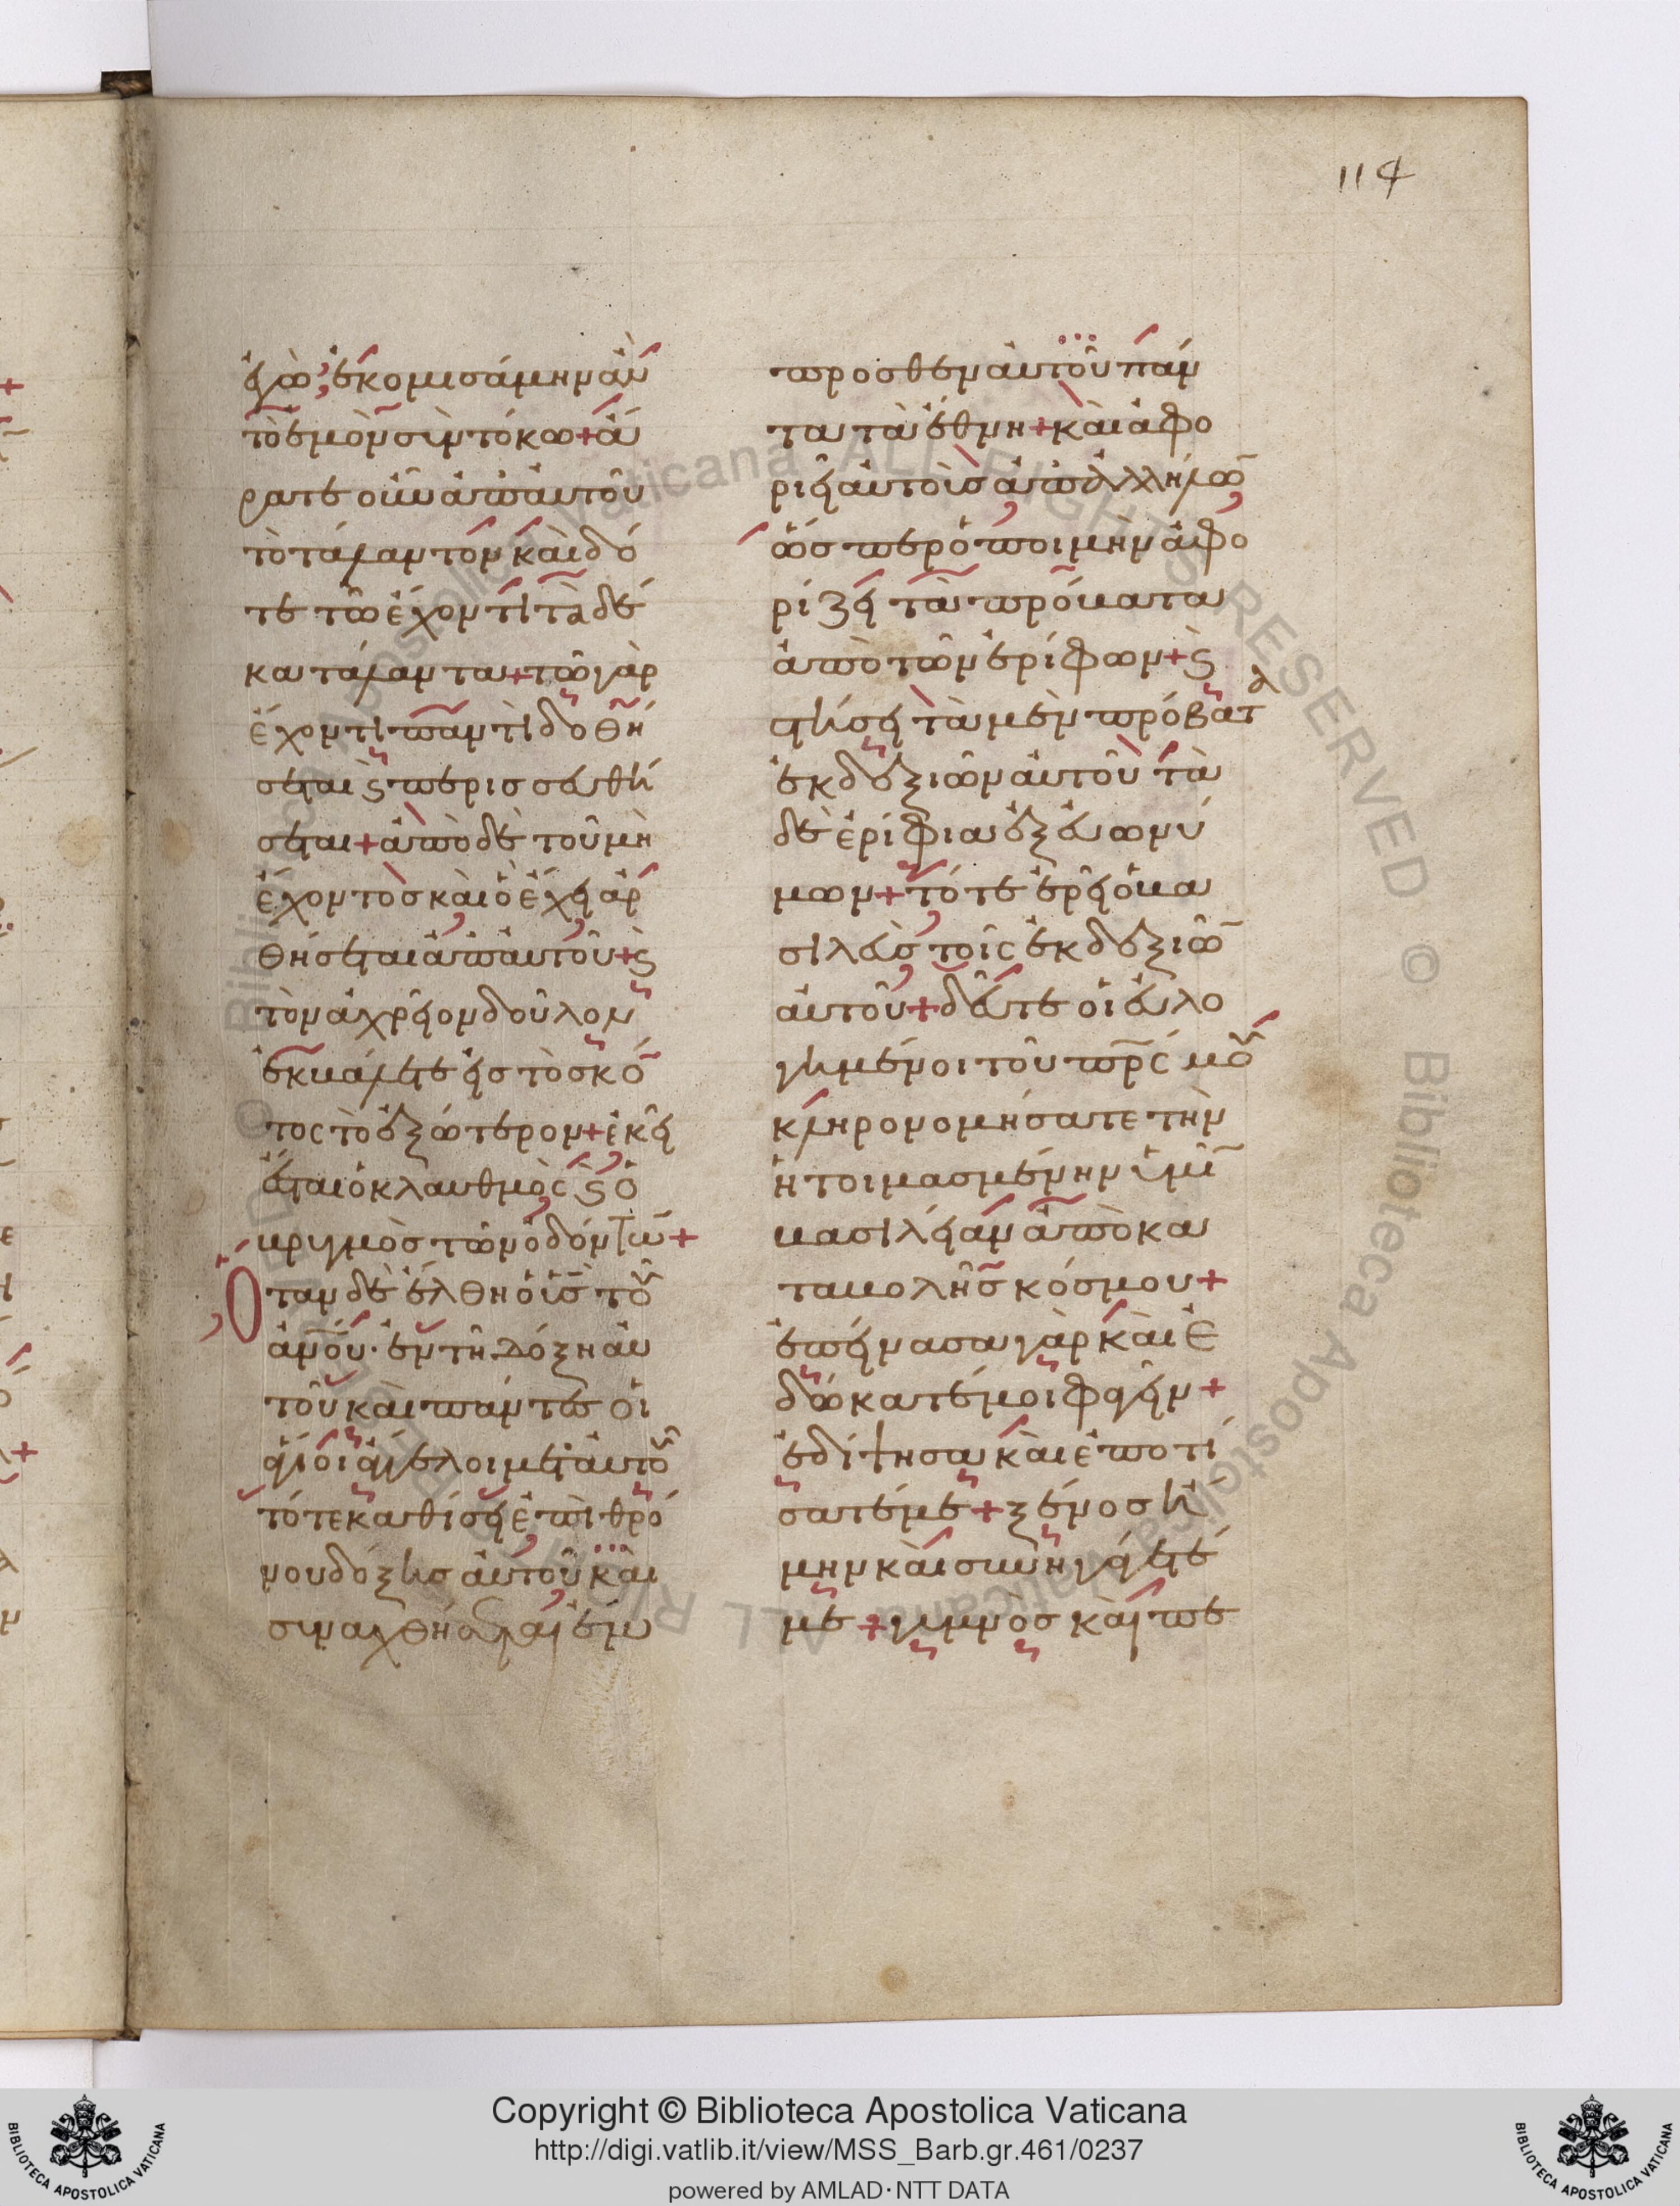 114
ἐγὼ ἐκομισάμην ἂν
τὸ ἐμὸν σὺν τόκω + ἄ
ρατε οὖν ἀπ αὐτοῦ
τὸ τάλαντον καὶ δό
τε τῶ ἔχοντι τὰ δέ
κα τάλαντα + τῶ γὰρ
ἔχοντι παντὶ δοθή
σεται ϗ περισσευθή
σεται + ἀπὸ δὲ τοῦ μὴ
ἔχοντος καὶ ὃ ἔχει ἀρ
θήσεται ἀπ αὐτοῦ + ϗ
τὸν ἀχρεῖον δοῦλον
ἐκβάλετε εἰς τὸ σκό
τος τὸ ἐξώτερον + ἐκεῖ
ἔσται ὁ κλαυθμὸς ϗ ὁ
βρυγμὸς τῶν ὀδόντω̄ +
Ὅταν δὲ ἔλθη ὁ ῡς τοῦ
ἀν̄ου · ἐν τῆ δόξη αὐ
τοῦ καὶ πάντες οἱ
ἅγιοι ἄγγελοι μετ αὐτοῦ
τότε καθίσει ἐπὶ θρό
νου δόξης αὐτοῦ καὶ
συναχθήσεται ἔμ
προσθεν αὐτοῦ πάν
τα τὰ ἔθνη + καὶ ἀφο
ριεῖ αὐτοὺς ἀπ ἀλλήλω̄
ὥσπερ ὁ ποιμὴν ἀφο
ρίζει τὰ πρόβατα
ἀπὸ τῶν ἐρίφων + ϗ
στήσει τὰ μὲν πρόβατα
ἐκ δεξιῶν αὐτοῦ τὰ
δὲ ἐρίφια ἐξ εὐωνύ
μων + τότε ἐρεῖ ὁ βα
σιλεὺς τοῖς ἐκ δεξιῶ̄
αὐτοῦ + δεῦτε οἱ εὐλο
γημένοι τοῦ πρ̄ς μου
κληρονομήσατε τὴν
ἡτοιμασμένην ὑμῖ̄
βασιλείαν ἀπὸ κα
ταβολῆς κόσμου +
ἐπείνασα γὰρ καὶ ἐ
δώκατέ μοι φαγεῖν +
ἐδίψησα καὶ ἐποτί
σατέ με + ξένος ἤ
μην καὶ συνηγάγετέ
με + γυμνὸς καὶ πε
Copyright © Biblioteca Apostolica Vaticana
http://digi.vatlib.it/view/MSS_Barb.gr.461/0237
powered by AMLAD·NTT DATA